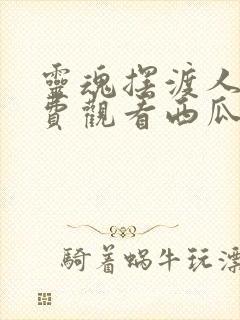 靈魂摆渡人
費觀看西瓜
騎着蝸牛玩漂